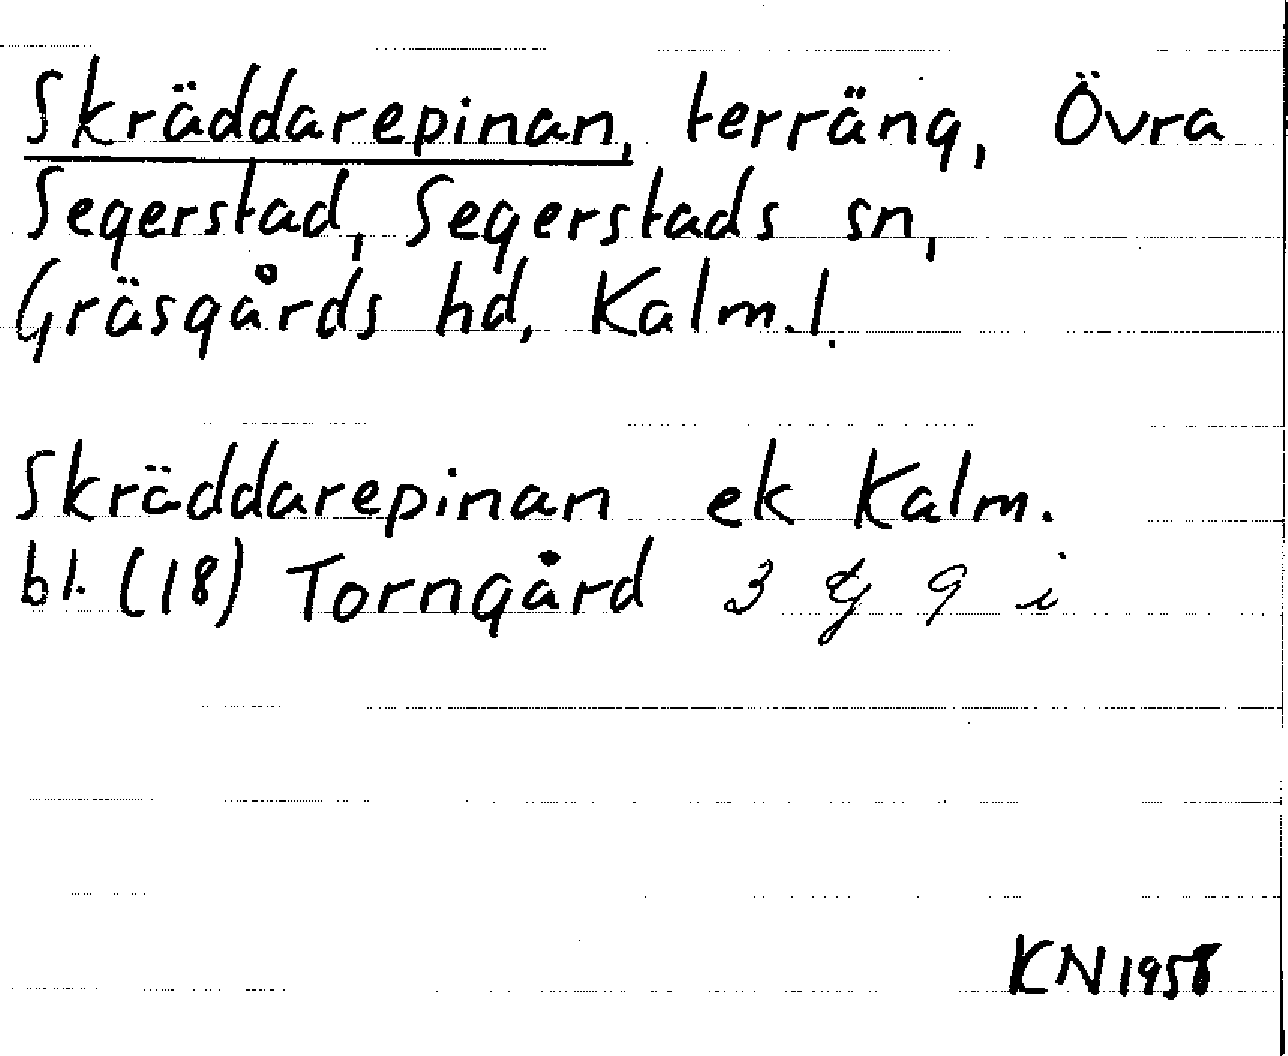 Skräddarepinan, terräng, Övra
Segerstad, Segerstads sn,
Gräsgårds hd, Kalm. l.
Skräddarepinan ek Kalm.
bl. (18) Torngård 3 g 9 i
KN 1958